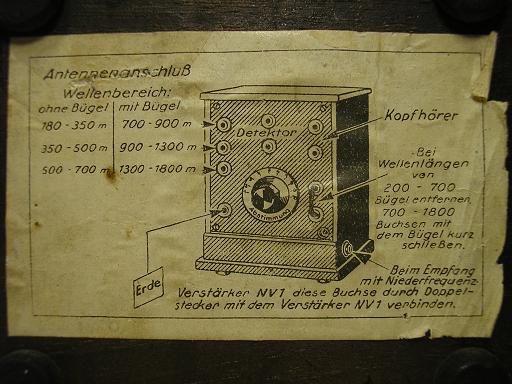 Antennenanschluß
Wellenbereich:
ohne Bügel mit Bügel
180 - 350 m 700 - 900 m
350 - 500 m 900 - 1300 m
500 - 700 m 1300 - 1800 m
Detektor
Kopfhörer
Bei
Wellenlängen
von
200 - 700
Bügel entfernen,
700 - 1800
Buchsen mit
dem Bügel kurz
schließen.
Abstimmung
Erde
Beim Empfang
mit Niederfrequenz-
Verstärker NV1 diese Buchse durch Doppel-
stecker mit dem Verstärker NV1 verbinden.